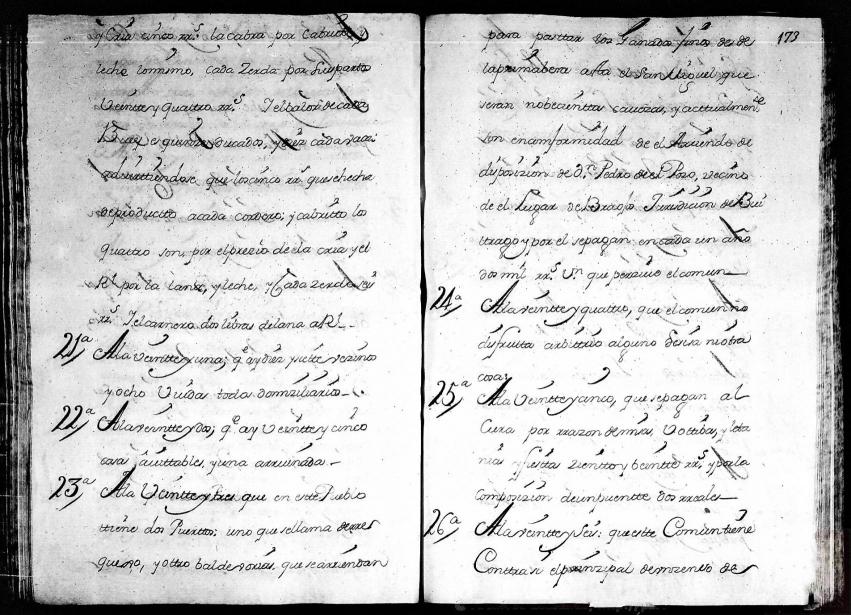 y Cria cinco rr.s la cabra por Cabrito y
leche lo mismo, cada Zerda por su parto
Veintte y quattro rr.s Y el balor de cada
Buey es quinze ducados, y diez cada vaca:
adbirttiendose, que los cinco rr.s que se hecha
de produccto acada Cordero; y cabritto los
quattro son, por el prezio de la cria y el
R.l por la lana, y leche, y Cada Zerda seis
rr.s Y el carnero dos libras de lana a R.l
21.a A la veintte y una; q.e ay diez y siette vezinos
y ocho Viudas todas domiziliarias
22.a A la veintte y dos; q.e ay Veintte y cinco
casas avittables, y una arruinada
23.a A la Veintte y tres que en este Pueblo
ttiene dos Puerttos: uno que se llama
y ottro que se arriendan
173
para pasttar los Ganados finos desde
la primabera asta el San Miguel que
seran nobecientas cavezas, y acttualmen.te
son en conformidad de el Arriendo de
disposizion de D.n Pedro de el Pozo, vecino
de el Lugar de Braojos Jurisdicion de Bui
ttrago y por el se pagan en cada un año
dos mil rr.s V.n que perzive el comun
24.a A la veintte y quattro, que el comun no
disfrutta arbittrio alguno desisa ni otra
cosa
25.a A la Veintte y cinco, que se pagan al
Cura por rrazon de misas, Vottibas, y letta
nias y fiesttas zientto y beintte rr.s y por la
Composizion de un puentte dos rreales
26.a A la veintte y seis: que este Comun tiene
Conttra si el prinzipal de un zenso de